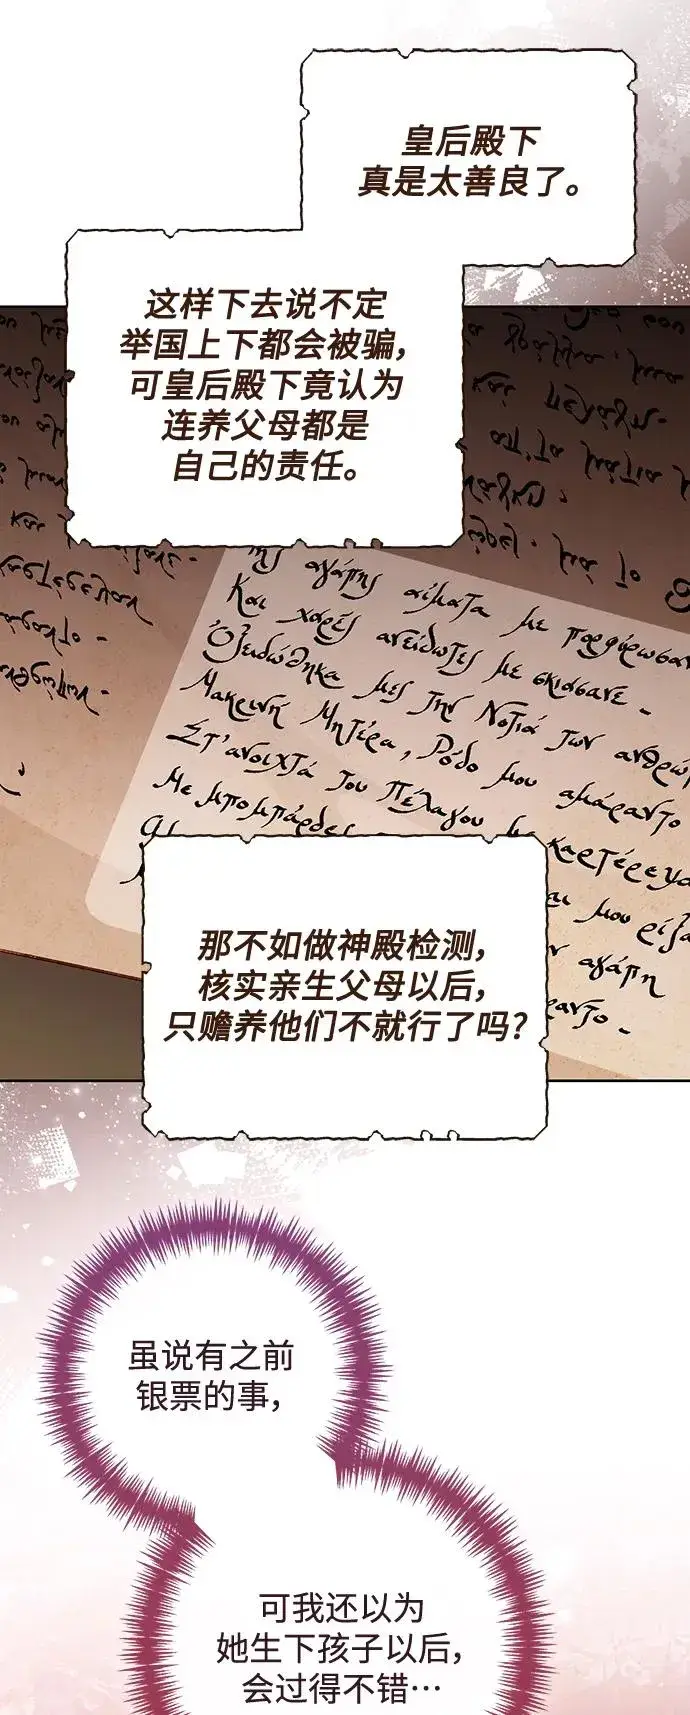 皇后殿下
真是太善良了。
这样下去说不定
举国上下都会被骗，
可皇后殿下竟认为
连养父母都是
自己的责任。
της αγάπης αίματα με πορφύρωσαν
Και χαρές ανείδωτες με σκιάσανε
Οξειδώθηκα μες την Νοτιά των ανθρώπ
Μακρινή Μητέρα, Ρόδο μου αμάραντο
Στ'ανοιχτά του Πέλαγου με καρτέρεψα
Με μπομπάρδες
και μου ρίξα
ν αγάπη
άραντο
那不如做神殿检测，
核实亲生父母以后，
只赡养他们不就行了吗？
虽说有之前
银票的事，
可我还以为
她生下孩子以后，
会过得不错…